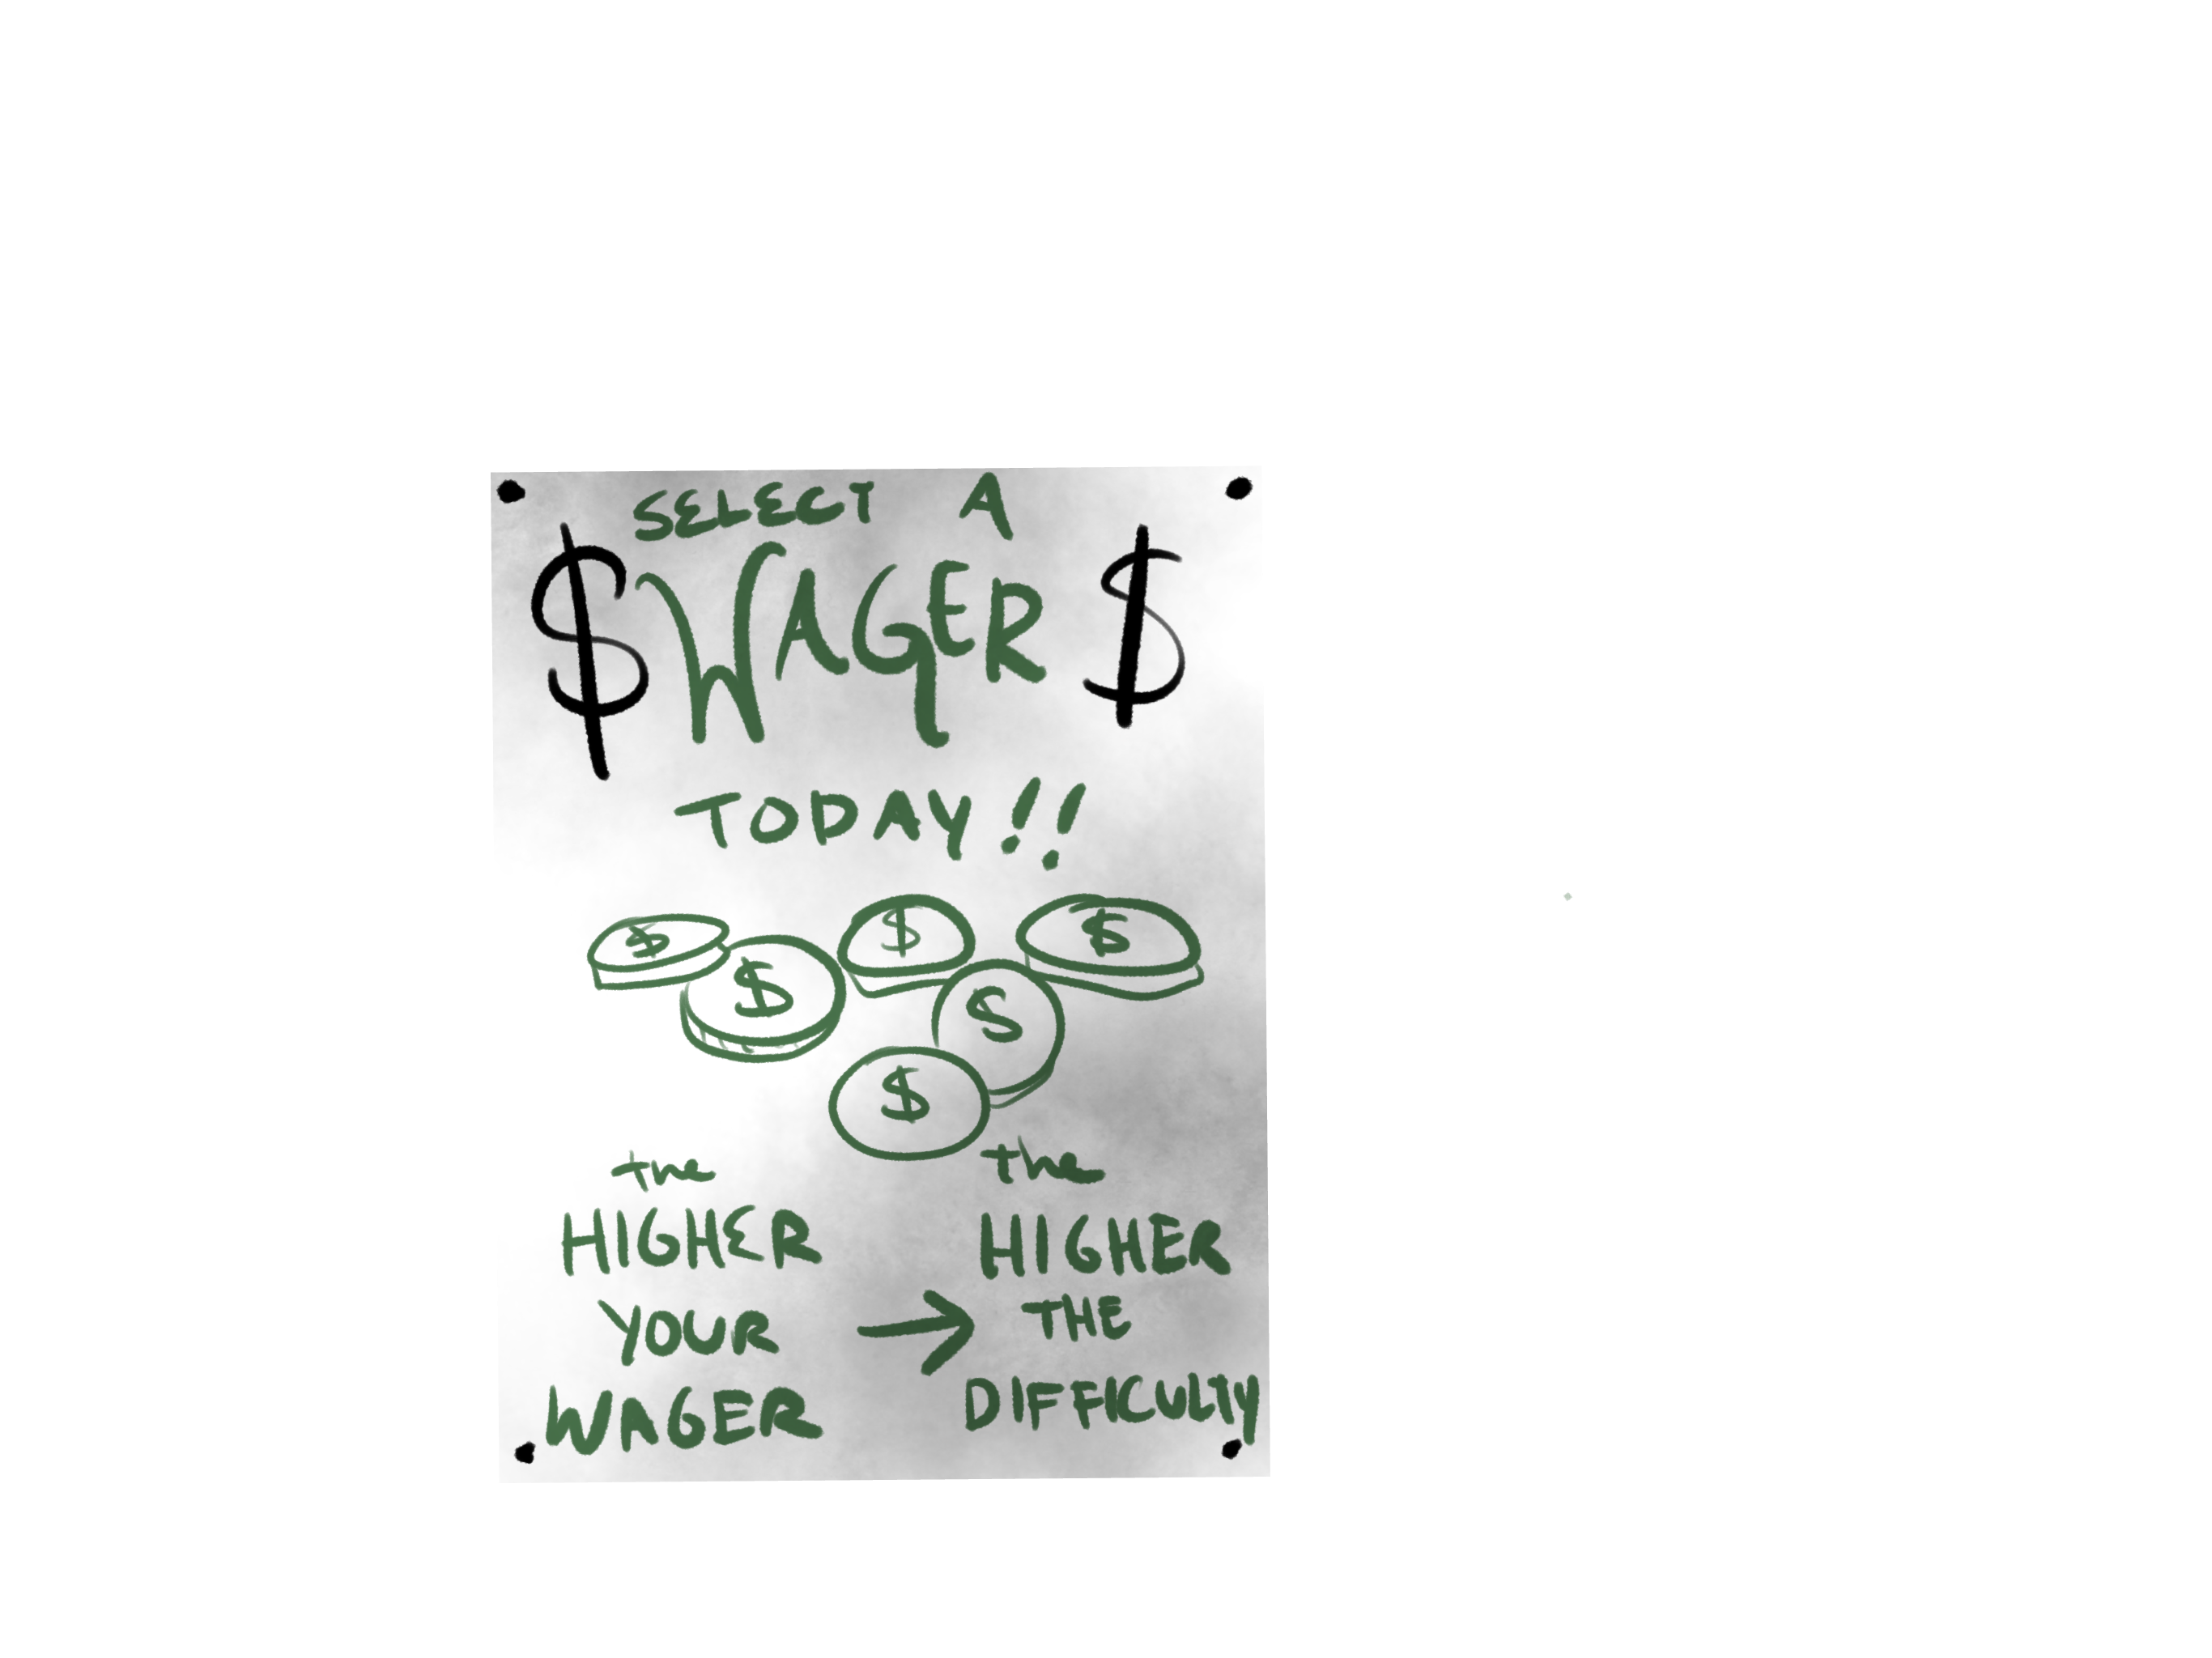 SELECT A
$ WAGER $
TODAY!!
$ $ $ $
S
$
the
HIGHER
YOUR
WAGER
→
the
HIGHER
THE
DIFFICULTY